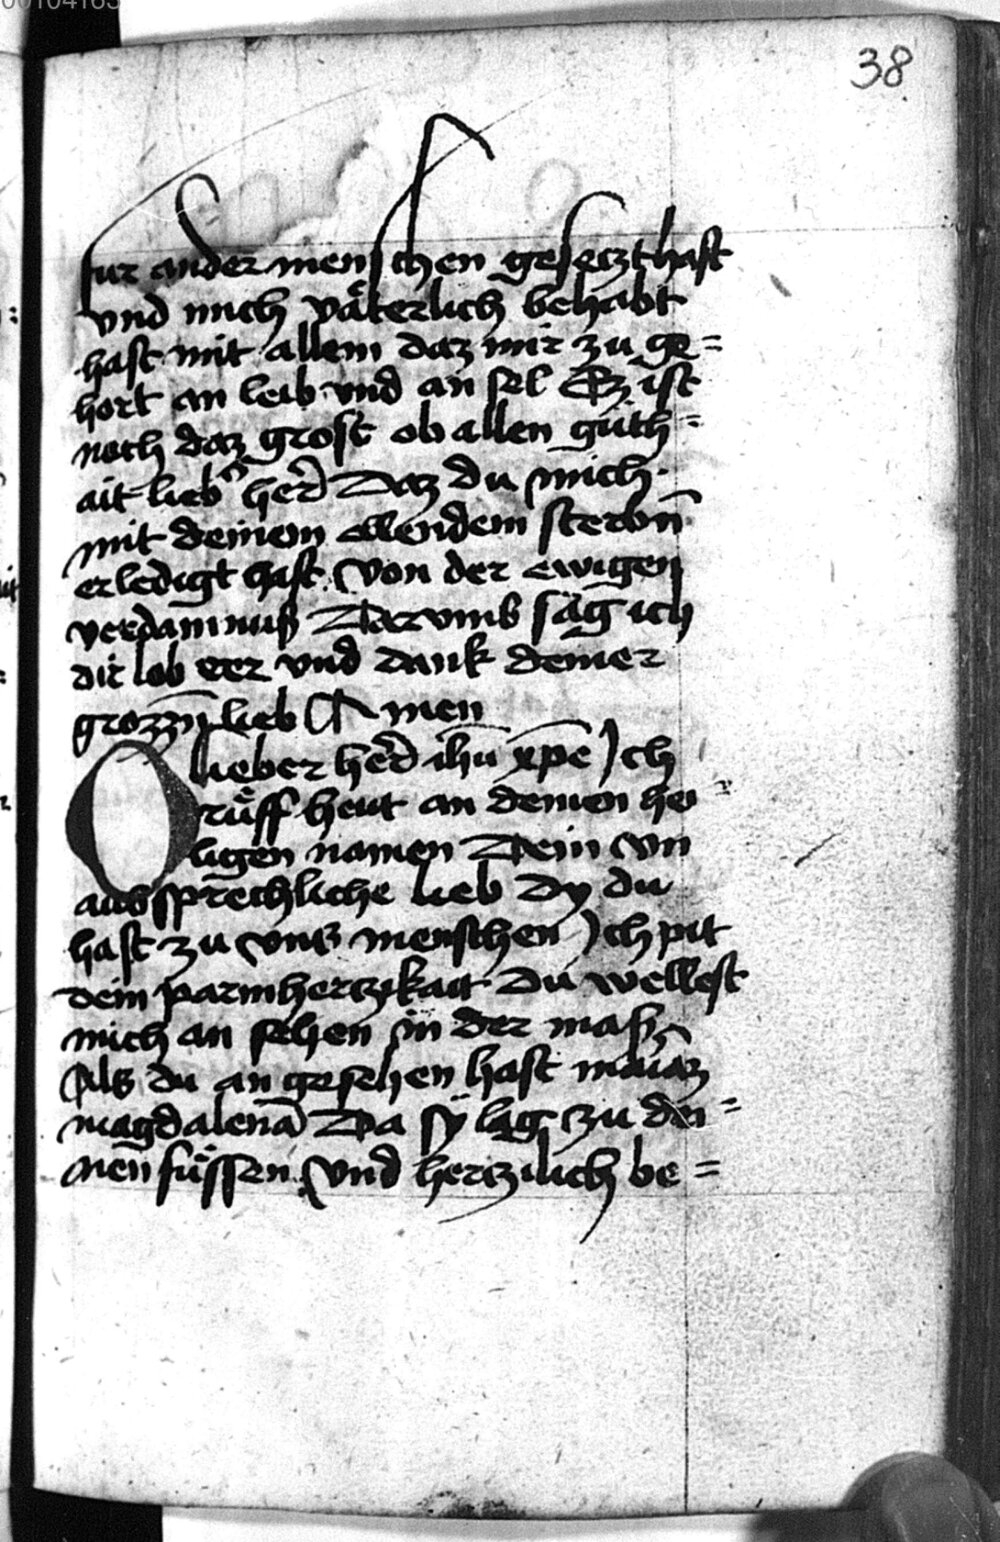 00104165
38
fur ander menschen gesetzt hast
vnd mich väterlich behabt
hast mit allem daz mir zu ge=
hort an leib vnd an sel Ez ist
noch daz grost ob allen güth=
ait lieb̾ her̄ Daz du mich
mit deinem ellendem sterbn̄
erledigt hast von der ewigen
verdamnuß Darvmb säg ich
dir lob eer vnd dank deiner
grozzn̄ lieb Amen
O lieber her̄ ihū xp̄e Ich
rüff heut an deinen hei
ligen namen Dein vn
aussprechliche lieb Dy du
hast zu vns menschen Ich pit
dein parmhertzikait Du wellest
mich an sehen in der maß
Als du an gesehen hast mariaz̄
magdalena Da sÿ lag zu dei=
nen̄ füssen vnd hertzilich be=